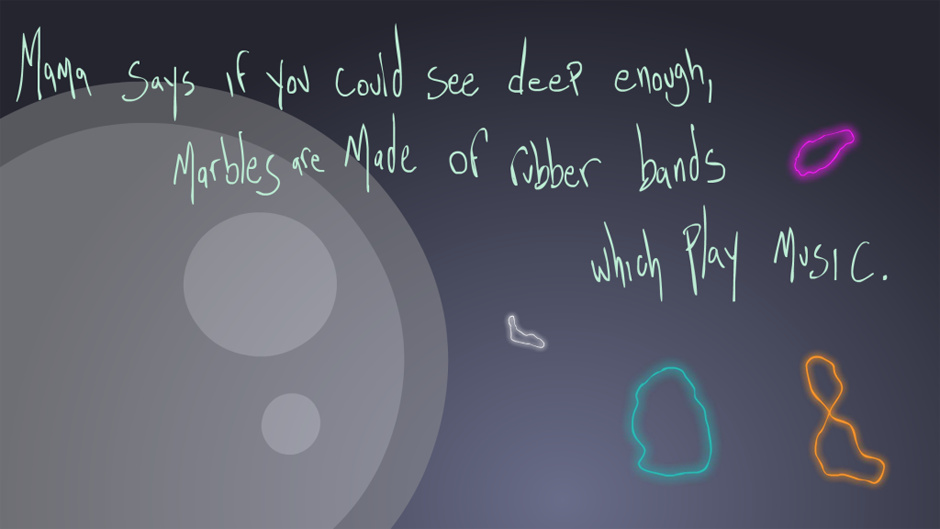 Mama says if you could see deep enough,
Marbles are Made of rubber bands
which Play Music.